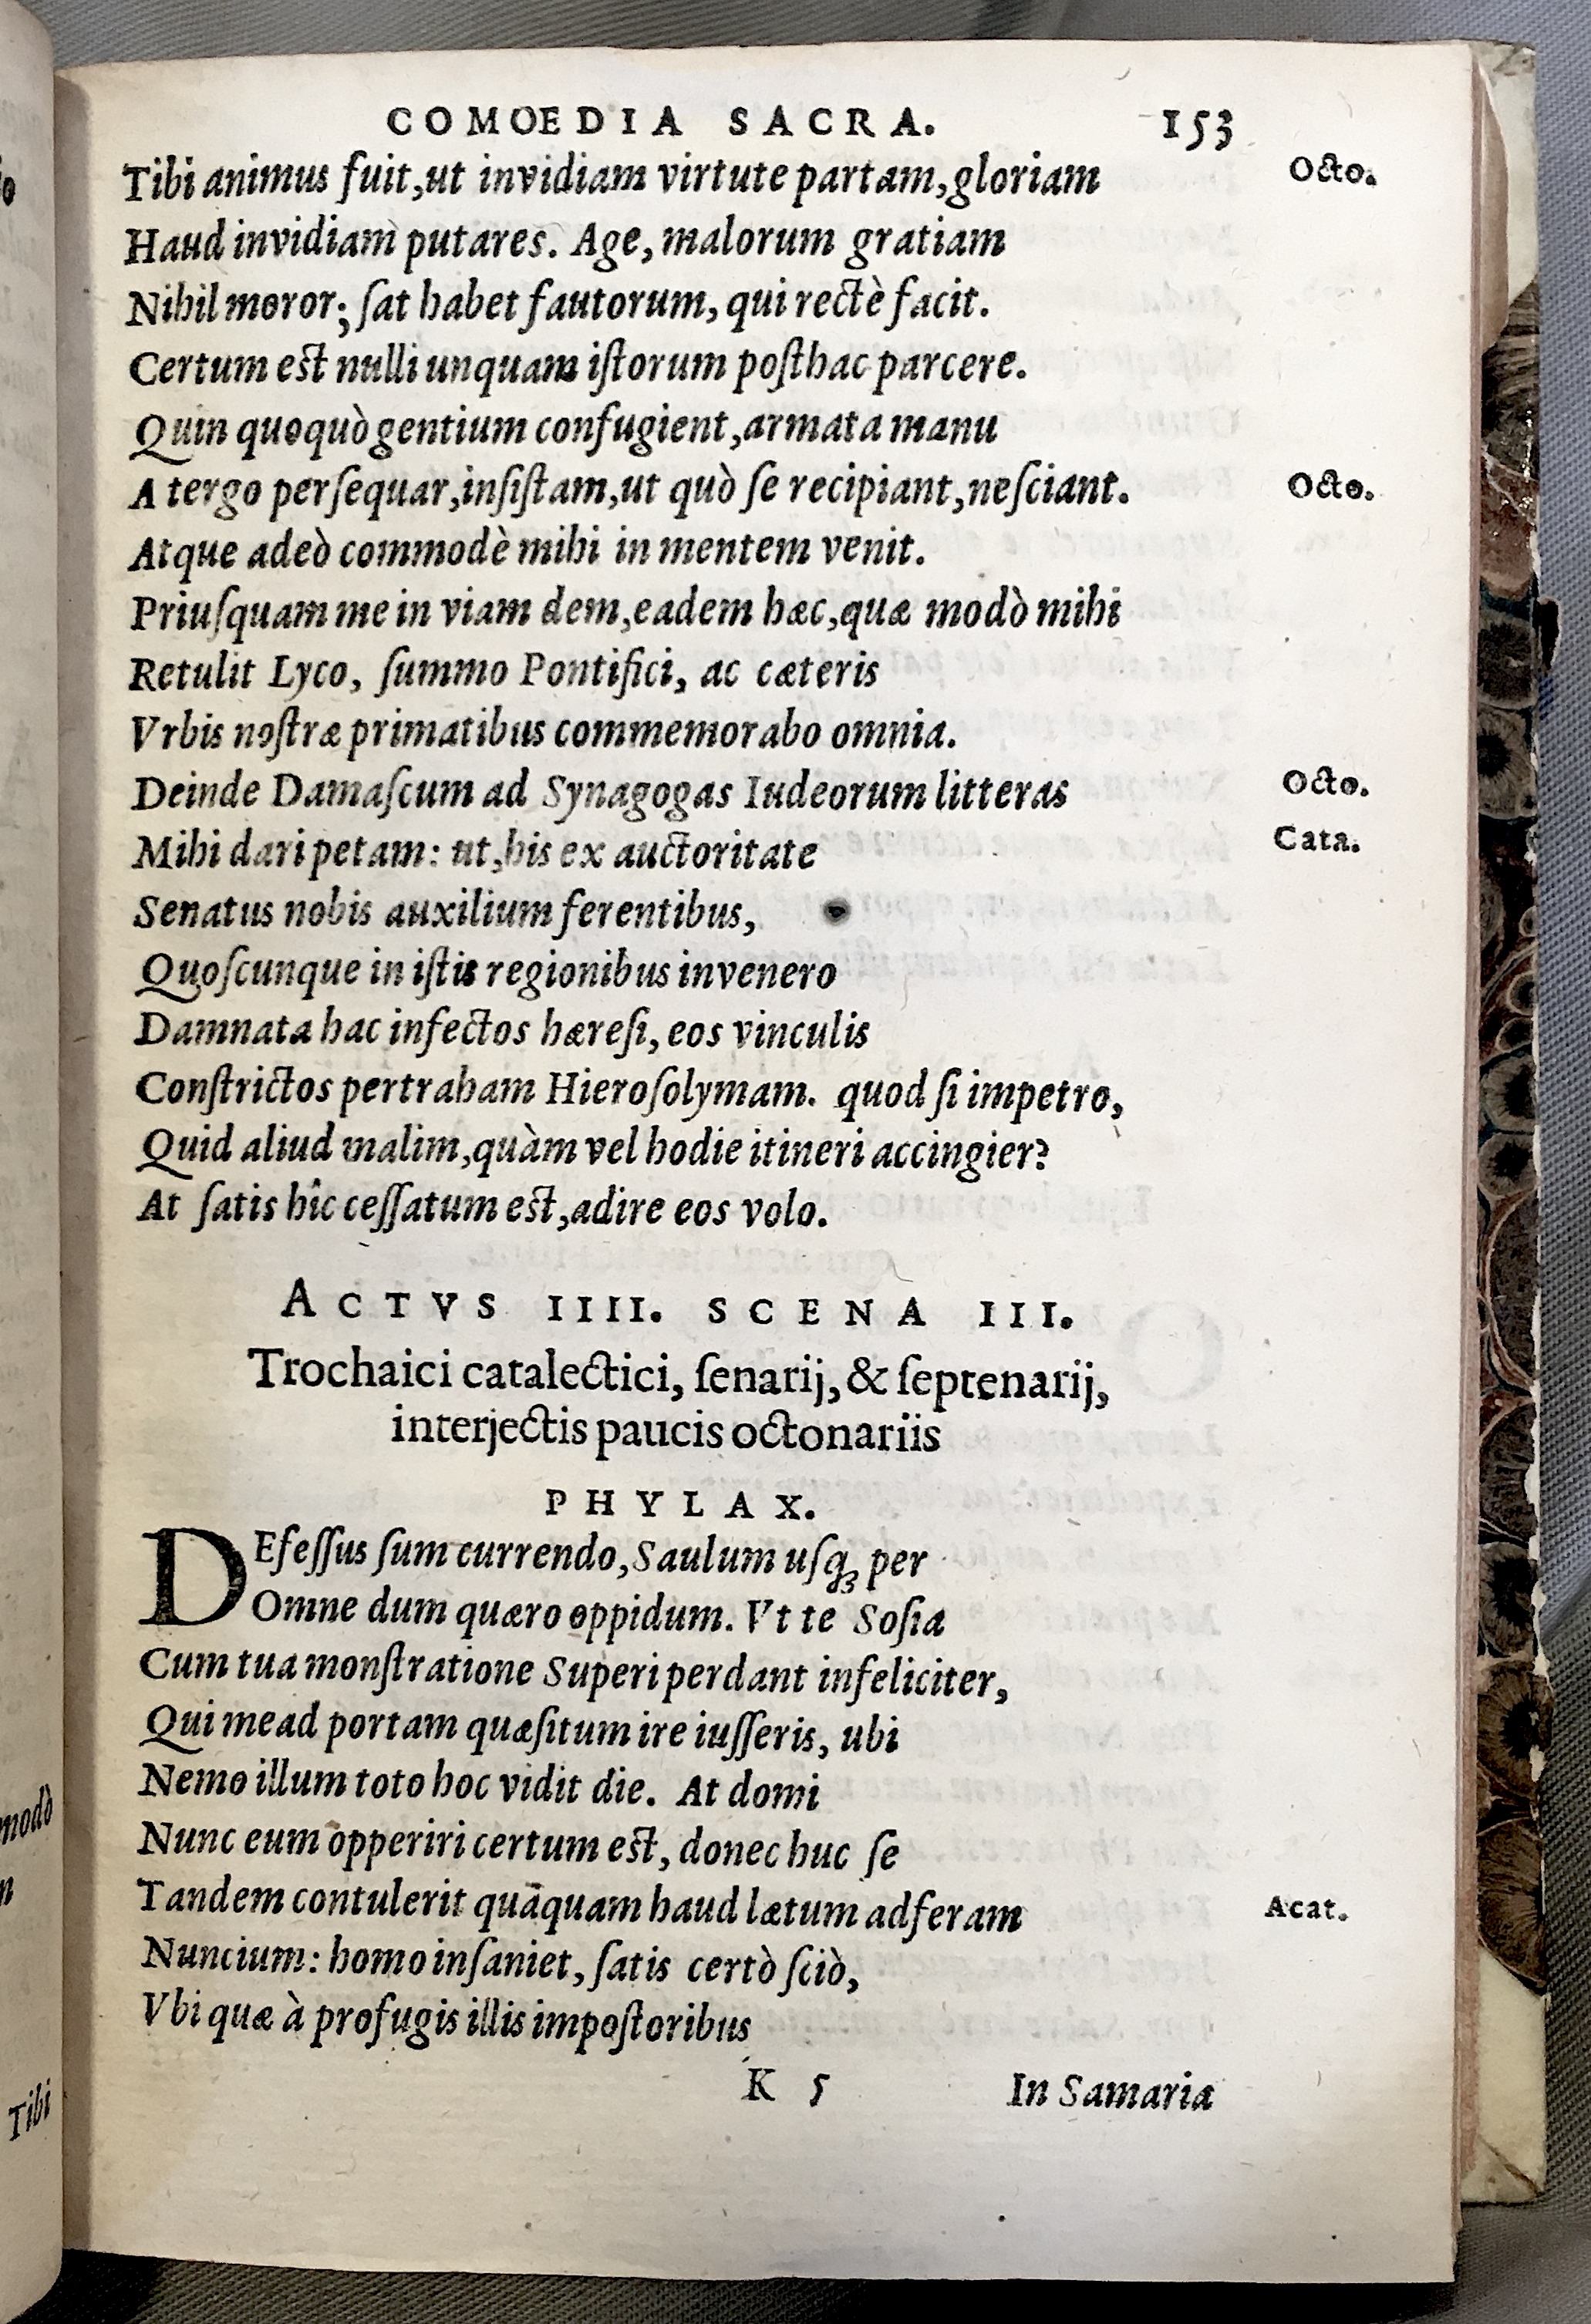 COMOEDIA SACRA. 153
Tibi animus fuit, ut invidiam virtute partam, gloriam Octo.
Haud invidiam putares. Age, malorum gratiam
Nihil moror; ſat habet fautorum, qui rectè facit.
Certum est nulli unquam iſtorum poſthac parcere.
Quin quoquò gentium confugient, armata manu
A tergo perſequar, inſiſtam, ut quò ſe recipiant, neſciant. Octo.
Atque adeò commodè mihi in mentem venit.
Priuſquam me in viam dem, eadem hæc, quæ modò mihi
Retulit Lyco, ſummo Pontifici, ac cæteris
Vrbis noſtræ primatibus commemorabo omnia.
Deinde Damaſcum ad Synagogas Iudeorum litteras Octo.
Mihi dari petam: ut, his ex auctoritate Cata.
Senatus nobis auxilium ferentibus,
Quoſcunque in iſtis regionibus invenero
Damnata hac infectos hæreſi, eos vinculis
Conſtrictos pertraham Hieroſolymam. quod ſi impetro,
Quid aliud malim, quàm vel hodie itineri accingier?
At ſatis hîc ceſſatum est, adire eos volo.
ACTVS IIII. SCENA III.
Trochaici catalectici, ſenarij, & ſeptenarij,
interjectis paucis octonariis
PHYLAX.
DEfeſſus ſum currendo, Saulum uſq₃ per
Omne dum quæro oppidum. Vt te Soſia
Cum tua monſtratione Superi perdant infeliciter,
Qui me ad portam quæſitum ire iuſſeris, ubi
Nemo illum toto hoc vidit die. At domi
Nunc eum opperiri certum est, donec huc ſe
Tandem contulerit quāquam haud lætum adferam Acat.
Nuncium: homo inſaniet, ſatis certò ſciò,
Vbi quæ à profugis illis impoſtoribus
K 5 In Samaria
modò
n
Tibi